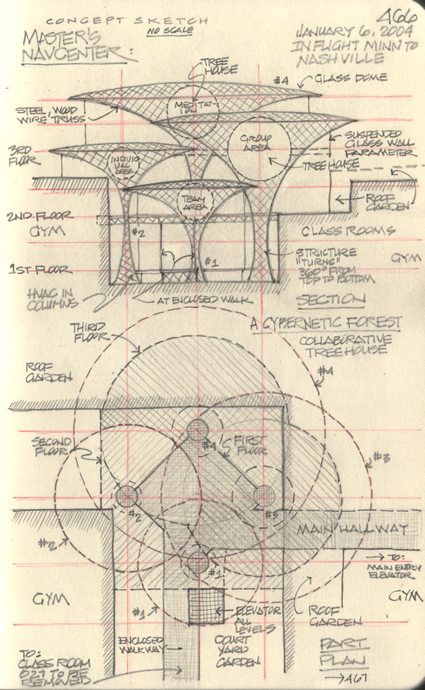 CONCEPT SKETCH
NO SCALE
466
MASTER'S
NAVCENTER:
JANUARY 6, 2004
IN FLIGHT MINN TO
NASHVILLE
TREE
HOUSE
#4
GLASS DOME
STEEL, WOOD
WIRE TRUSS
MEDITAT-
ION
GROUP
AREA
SUSPENDED
GLASS WALL
PARAMETER
TREE HOUSE
3RD
FLOOR
INDIVID
UAL
AREA
TEAM
AREA
ROOF
GARDEN
2ND FLOOR
GYM
#2
#1
CLASS ROOMS
GYM
STRUCTURE
"TURNS"
360° FROM
TOP TO BOTTOM
1ST FLOOR
HVAC IN
COLUMNS
AT ENCLOSED WALK
SECTION
A CYBERNETIC FOREST
COLLABORATIVE
TREEHOUSE
THIRD
FLOOR
ROOF
GARDEN
#4
SECOND
FLOOR
#4
FIRST
FLOOR
#3
#2
#3
MAIN HALLWAY
#2
TO:
MAIN ENTRY
ELEVATOR
#1
GYM
#1
ELEVATOR
ALL
LEVELS
ROOF
GARDEN
GYM
ENCLOSED
WALKWAY
COURT
YARD
GARDEN
PART
PLAN
TO:
CLASS ROOM
027 TO BE
REMOVED
→467